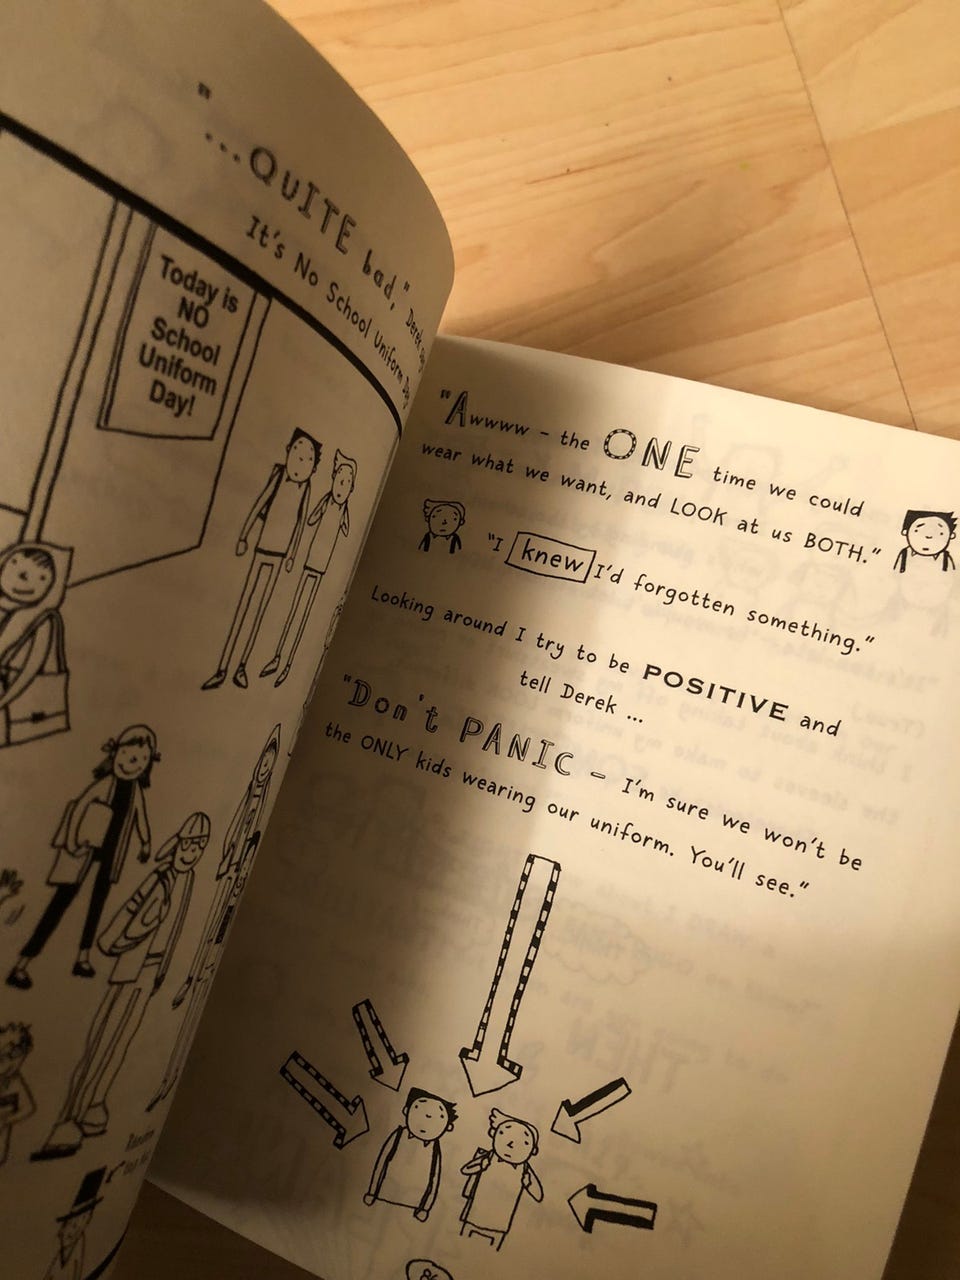 "...QUITE bad," Derek
It's No School Uniform Day
Today is
NO
School
Uniform
Day!
"Awwww – the ONE time we could
wear what we want, and LOOK at us BOTH."
"I knew I'd forgotten something."
Looking around I try to be POSITIVE and
tell Derek ...
"Don't PANIC – I'm sure we won't be
the ONLY kids wearing our uniform. You'll see."
86